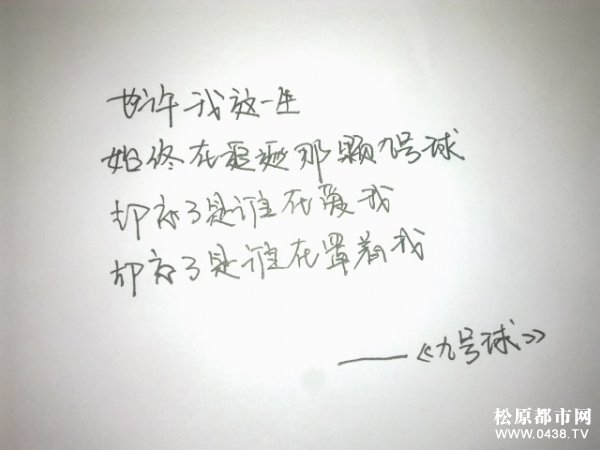 也许我这一生
始终在追逐那颗九号球
却忘了是谁在爱我
却忘了是谁在罩着我
——《九号球》
松原都市网
WWW.0438.TV